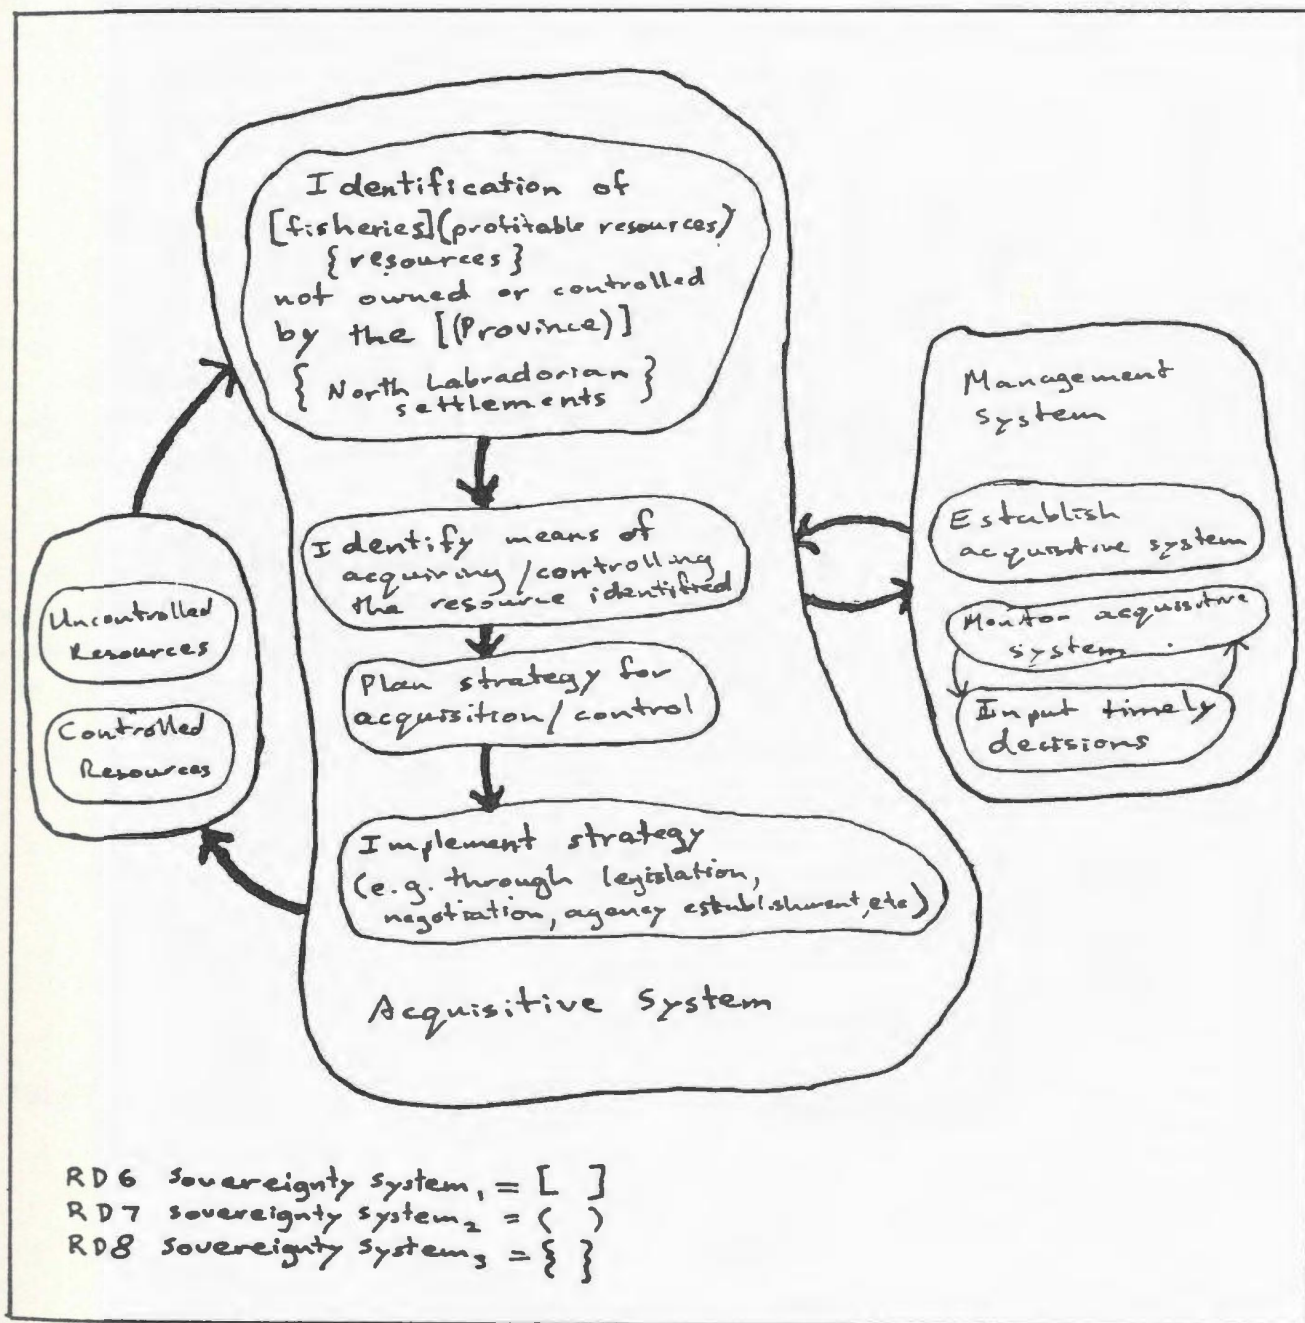 Identification of
[fisheries](profitable resources)
{resources}
not owned or controlled
by the [(Province)]
{North Labradorian
settlements}
Identify means of
acquiring/controlling
the resource identified
Plan strategy for
acquisition/control
Implement strategy
(e.g. through legislation,
negotiation, agency establishment, etc)
Acquisitive System
Uncontrolled
Resources
Controlled
Resources
Management
System
Establish
acquisitive system
Monitor acquisitive
system.
Input timely
decisions
RD6 sovereignty system₁ = [ ]
RD7 sovereignty system₂ = ( )
RD8 sovereignty system₃ = { }